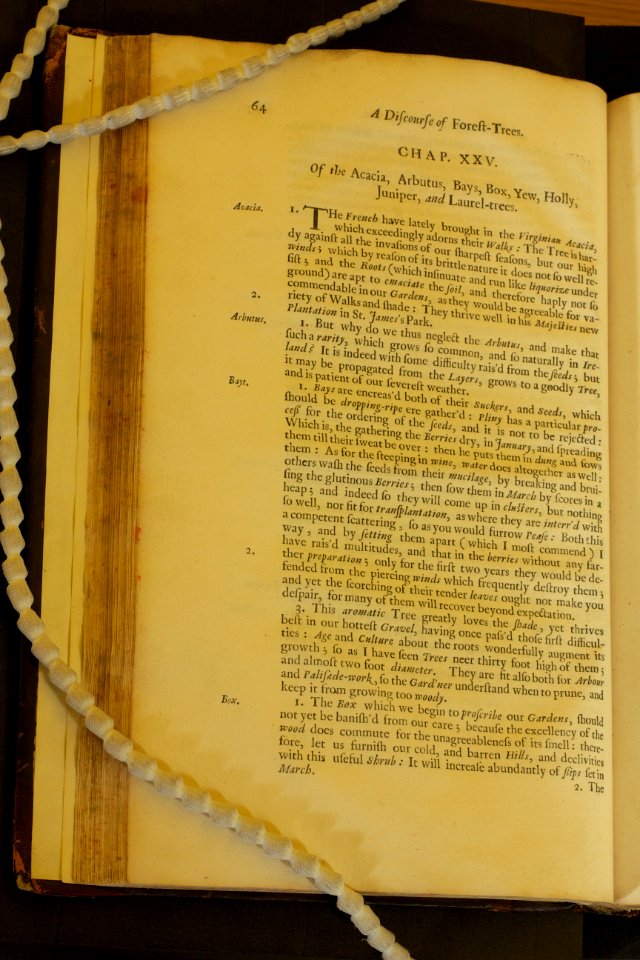 64
A Diſcourſe of Foreſt-Trees.
CHAP. XXV.
Of the Acacia, Arbutus, Bays, Box, Yew, Holly,
Juniper, and Laurel-trees.
Acacia.
1. THe French have lately brought in the Virginian Acacia,
which exceedingly adorns their Walks: The Tree is har-
dy againſt all the invaſions of our ſharpeſt ſeaſons, but our high
winds; which by reaſon of its brittle nature it does not ſo well re-
ſiſt; and the Roots (which inſinuate and run like liquorize under
ground) are apt to emaciate the ſoil, and therefore haply not ſo
commendable in our Gardens, as they would be agreeable for va-
2.
riety of Walks and ſhade: They thrive well in his Majeſties new
Plantation in St. James's Park.
Arbutus.
1. But why do we thus neglect the Arbutus, and make that
ſuch a rarity, which grows ſo common, and ſo naturally in Ire-
land? It is indeed with ſome difficulty rais'd from the ſeeds; but
it may be propagated from the Layers, grows to a goodly Tree,
and is patient of our ſevereſt weather.
Bays.
1. Bays are encreas'd both of their Suckers, and Seeds, which
ſhould be dropping-ripe ere gather'd: Pliny has a particular pro-
ceſs for the ordering of the ſeeds, and it is not to be rejected:
Which is, the gathering the Berries dry, in January, and ſpreading
them till their ſweat be over: then he puts them in dung and ſows
them: As for the ſteeping in wine, water does altogether as well:
others waſh the ſeeds from their mucilage, by breaking and brui-
ſing the glutinous Berries; then ſow them in March by ſcores in a
heap; and indeed ſo they will come up in cluſters, but nothing
ſo well, nor fit for tranſplantation, as where they are interr'd with
a competent ſcattering, ſo as you would furrow Peaſe: Both this
way, and by ſetting them apart (which I moſt commend) I
have rais'd multitudes, and that in the berries without any far-
2.
ther preparation; only for the firſt two years they would be de-
fended from the piercing winds which frequently deſtroy them;
and yet the ſcorching of their tender leaves ought not make you
deſpair, for many of them will recover beyond expectation.
3. This aromatic Tree greatly loves the ſhade, yet thrives
beſt in our hotteſt Gravel, having once paſs'd thoſe firſt difficul-
ties: Age and Culture about the roots wonderfully augment its
growth; ſo as I have ſeen Trees neer thirty foot high of them;
and almoſt two foot diameter. They are fit alſo both for Arbour
and Paliſade-work, ſo the Gard'ner underſtand when to prune, and
keep it from growing too woody.
Box.
1. The Box which we begin to proſcribe our Gardens, ſhould
not yet be baniſh'd from our care; becauſe the excellency of the
wood does commute for the unagreeableneſs of its ſmell: there-
fore, let us furniſh our cold, and barren Hills, and declivities
with this uſeful Shrub: It will increaſe abundantly of ſlips ſet in
March.
2. The